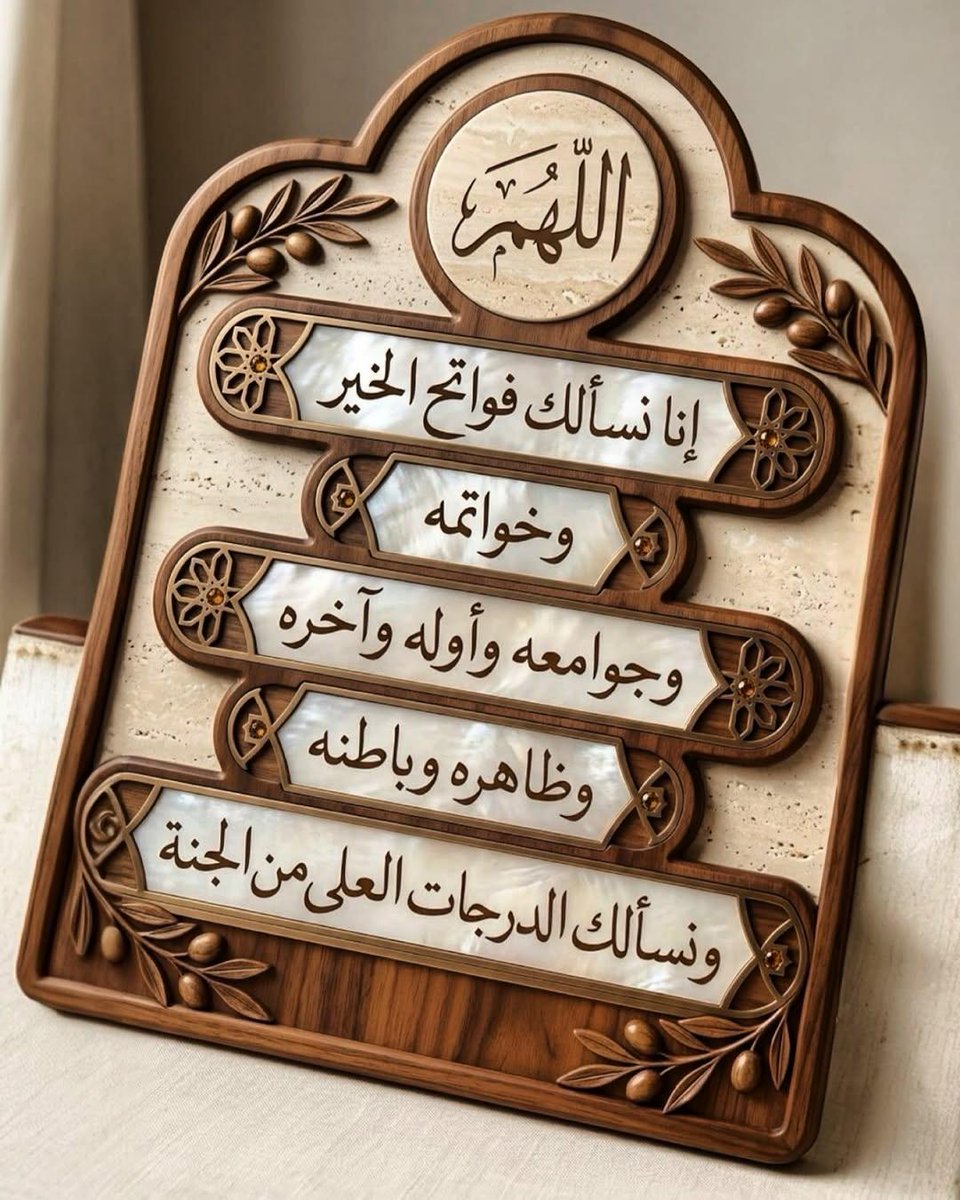 اللَّهُمَّ
إنا نسألك فواتح الخير
وخواتمه
وجوامعه وأوله وآخره
وظاهره وباطنه
ونسألك الدرجات العلى من الجنة